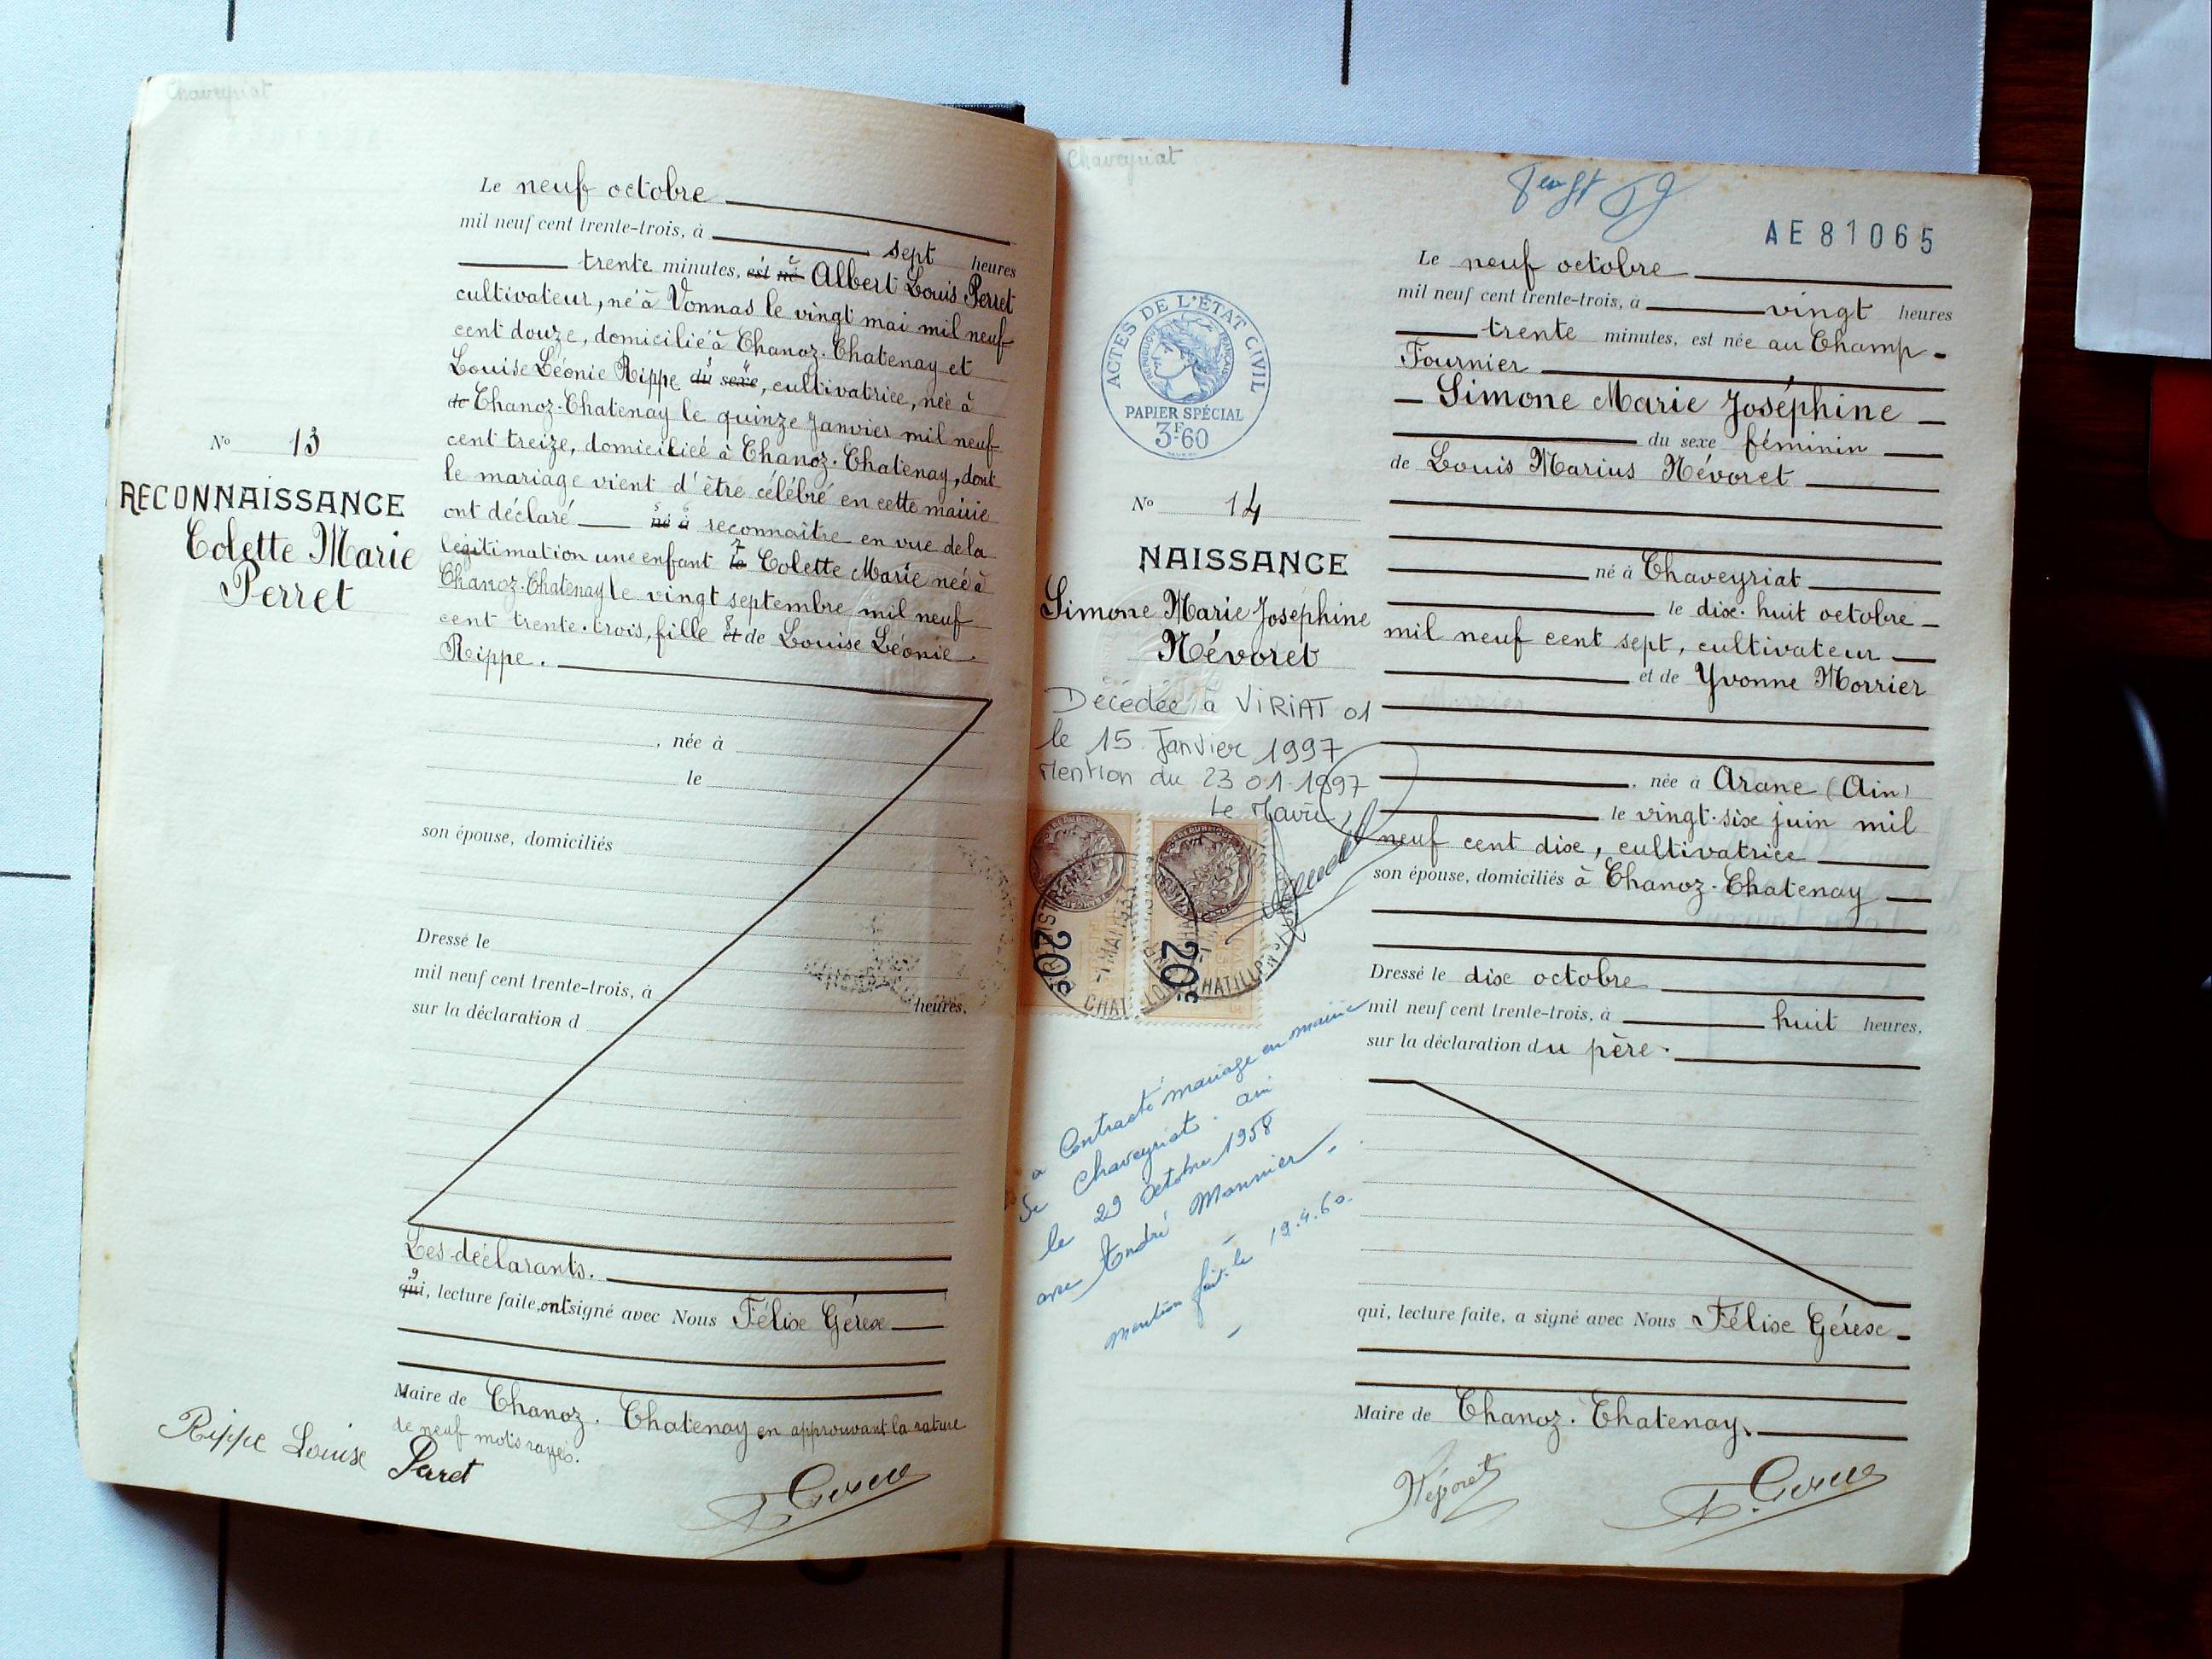 Chaveyriat
Le neuf octobre
mil neuf cent trente-trois, à sept heures
trente minutes, est né Albert Louis Perret
cultivateur, né à Vonnas le vingt mai mil neuf
cent douze, domicilié à Chanoz-Chatenay et
Louise Léonie Rippe du sexe, cultivatrice, née à
de Chanoz-Chatenay le quinze Janvier mil neuf
cent treize, domiciliée à Chanoz-Chatenay, dont
le mariage vient d'être célébré en cette mairie
ont déclaré né à reconnaître en vue de la
légitimation une enfant le Colette Marie née à
Chanoz-Chatenay le vingt septembre mil neuf
cent trente-trois, fille et de Louise Léonie
Rippe.
N° 13
RECONNAISSANCE
Colette Marie
Perret
, née à
le
son épouse, domiciliés
Dressé le
mil neuf cent trente-trois, à heures.
sur la déclaration d
Les déclarants.
qui, lecture faite, ont signé avec Nous Félix Gérexe
Maire de Chanoz-Chatenay en approuvant la rature
de neuf mots rayés.
Rippe Louise Perret
Chaveyriat
AE 81065
ACTES DE L'ÉTAT CIVIL
RÉPUBLIQUE FRANÇAISE
PAPIER SPÉCIAL
3F60
N° 14
NAISSANCE
Simone Marie Joséphine
Névoret
Décédée à VIRIAT 01
le 15 Janvier 1997
Mention du 23 01-1997
Le Maire,
20c
20c
a Contracté mariage en mairie
de Chaveyriat. ain
le 29 Octobre 1958
avec André Monnier
mention faite le 19.4.60.
Le neuf octobre
mil neuf cent trente-trois, à vingt heures
trente minutes, est née au Champ-
Fournier
Simone Marie Joséphine
du sexe féminin
de Louis Marius Névoret
né à Chaveyriat
le dix-huit octobre
mil neuf cent sept, cultivateur
et de Yvonne Morrier
, née à Arane (Ain)
le vingt-six juin mil
neuf cent dix, cultivatrice
son épouse, domiciliés à Chanoz-Chatenay
Dressé le dix octobre
mil neuf cent trente-trois, à huit heures.
sur la déclaration du père.
qui, lecture faite, a signé avec Nous Félix Gérexe
Maire de Chanoz-Chatenay.
Névoret